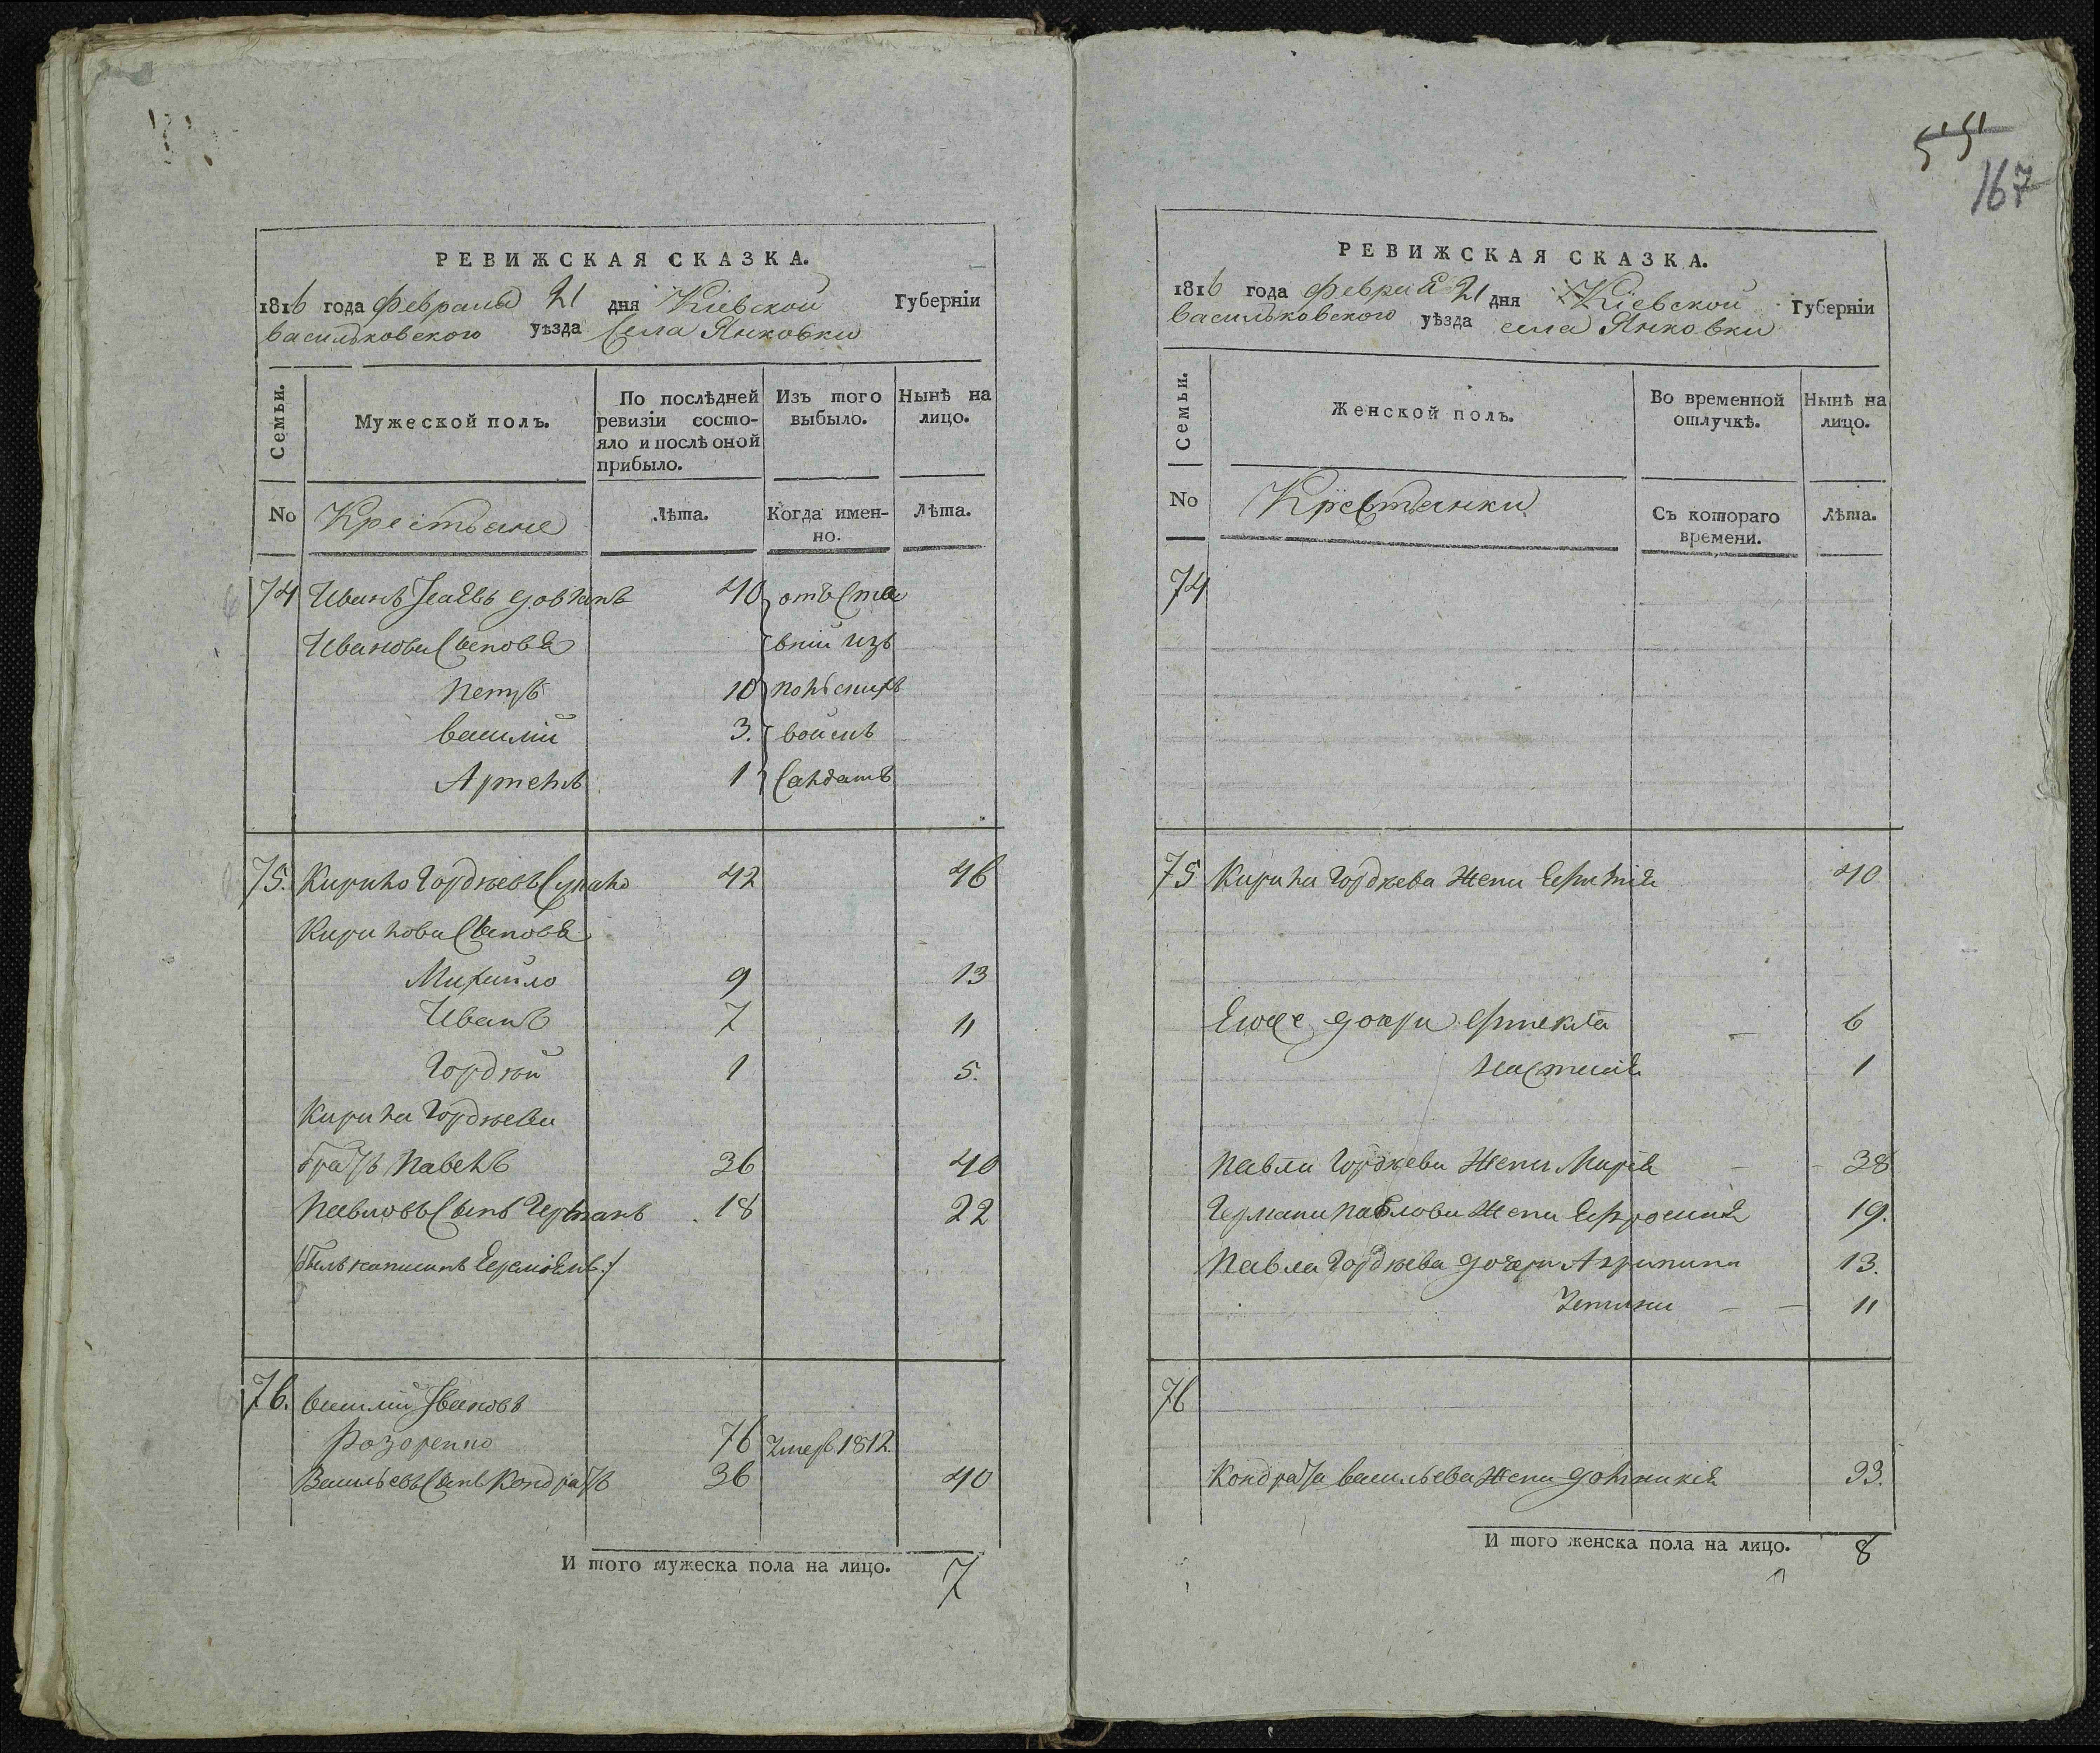 РЕВИЖСКАЯ СКАЗКА.
1816 года Февраля 21 дня Кіевской Губерніи
Васильковского уѣзда Села Янковки
Семьи.
Мужеской полъ.
По послѣдней ревизіи состояло и послѣ оной прибыло.
Изъ того выбыло.
Нынѣ на лицо.
No
Крестьяне
Лѣта.
Когда именно.
Лѣта.
74 Иванъ 40 отъ
Ивановы Сыновья
Петръ 10
Василій 3.
Артемъ 1 Салдатъ
75. Кирило Гордѣевъ 42 46
Кириловы Сыновья
Михайло 9 13
Иванъ 7 11
Гордѣй 1 5.
Кирила Гордѣева
братъ Павелъ 36 40
Павловъ Сынъ Германъ 18 22
былъ написанъ
76. Василій Ивановъ
Розоренко 76 Умеръ 1812.
Васильевъ Сынъ Кондратъ 36 40
И того мужеска пола на лицо. 7
55
167
РЕВИЖСКАЯ СКАЗКА.
1816 года Февраля 21 дня Кіевской Губерніи
Васильковского уѣзда села Янковки
Семьи.
Женской полъ.
Во временной отлучкѣ.
Нынѣ на лицо.
No
Крестьянки
Съ котораго времени.
Лѣта.
74
75 Кирила Гордѣева Жена 40
Ево дочери 6
Настасія 1
Павла Гордѣева Жена Марія 38
Германа Павлова Жена Ефросинія 19.
Павла Гордѣева дочери Агрипина 13.
11
76
Кондрата Васильева Жена Домникія 33.
И того женска пола на лицо. 8